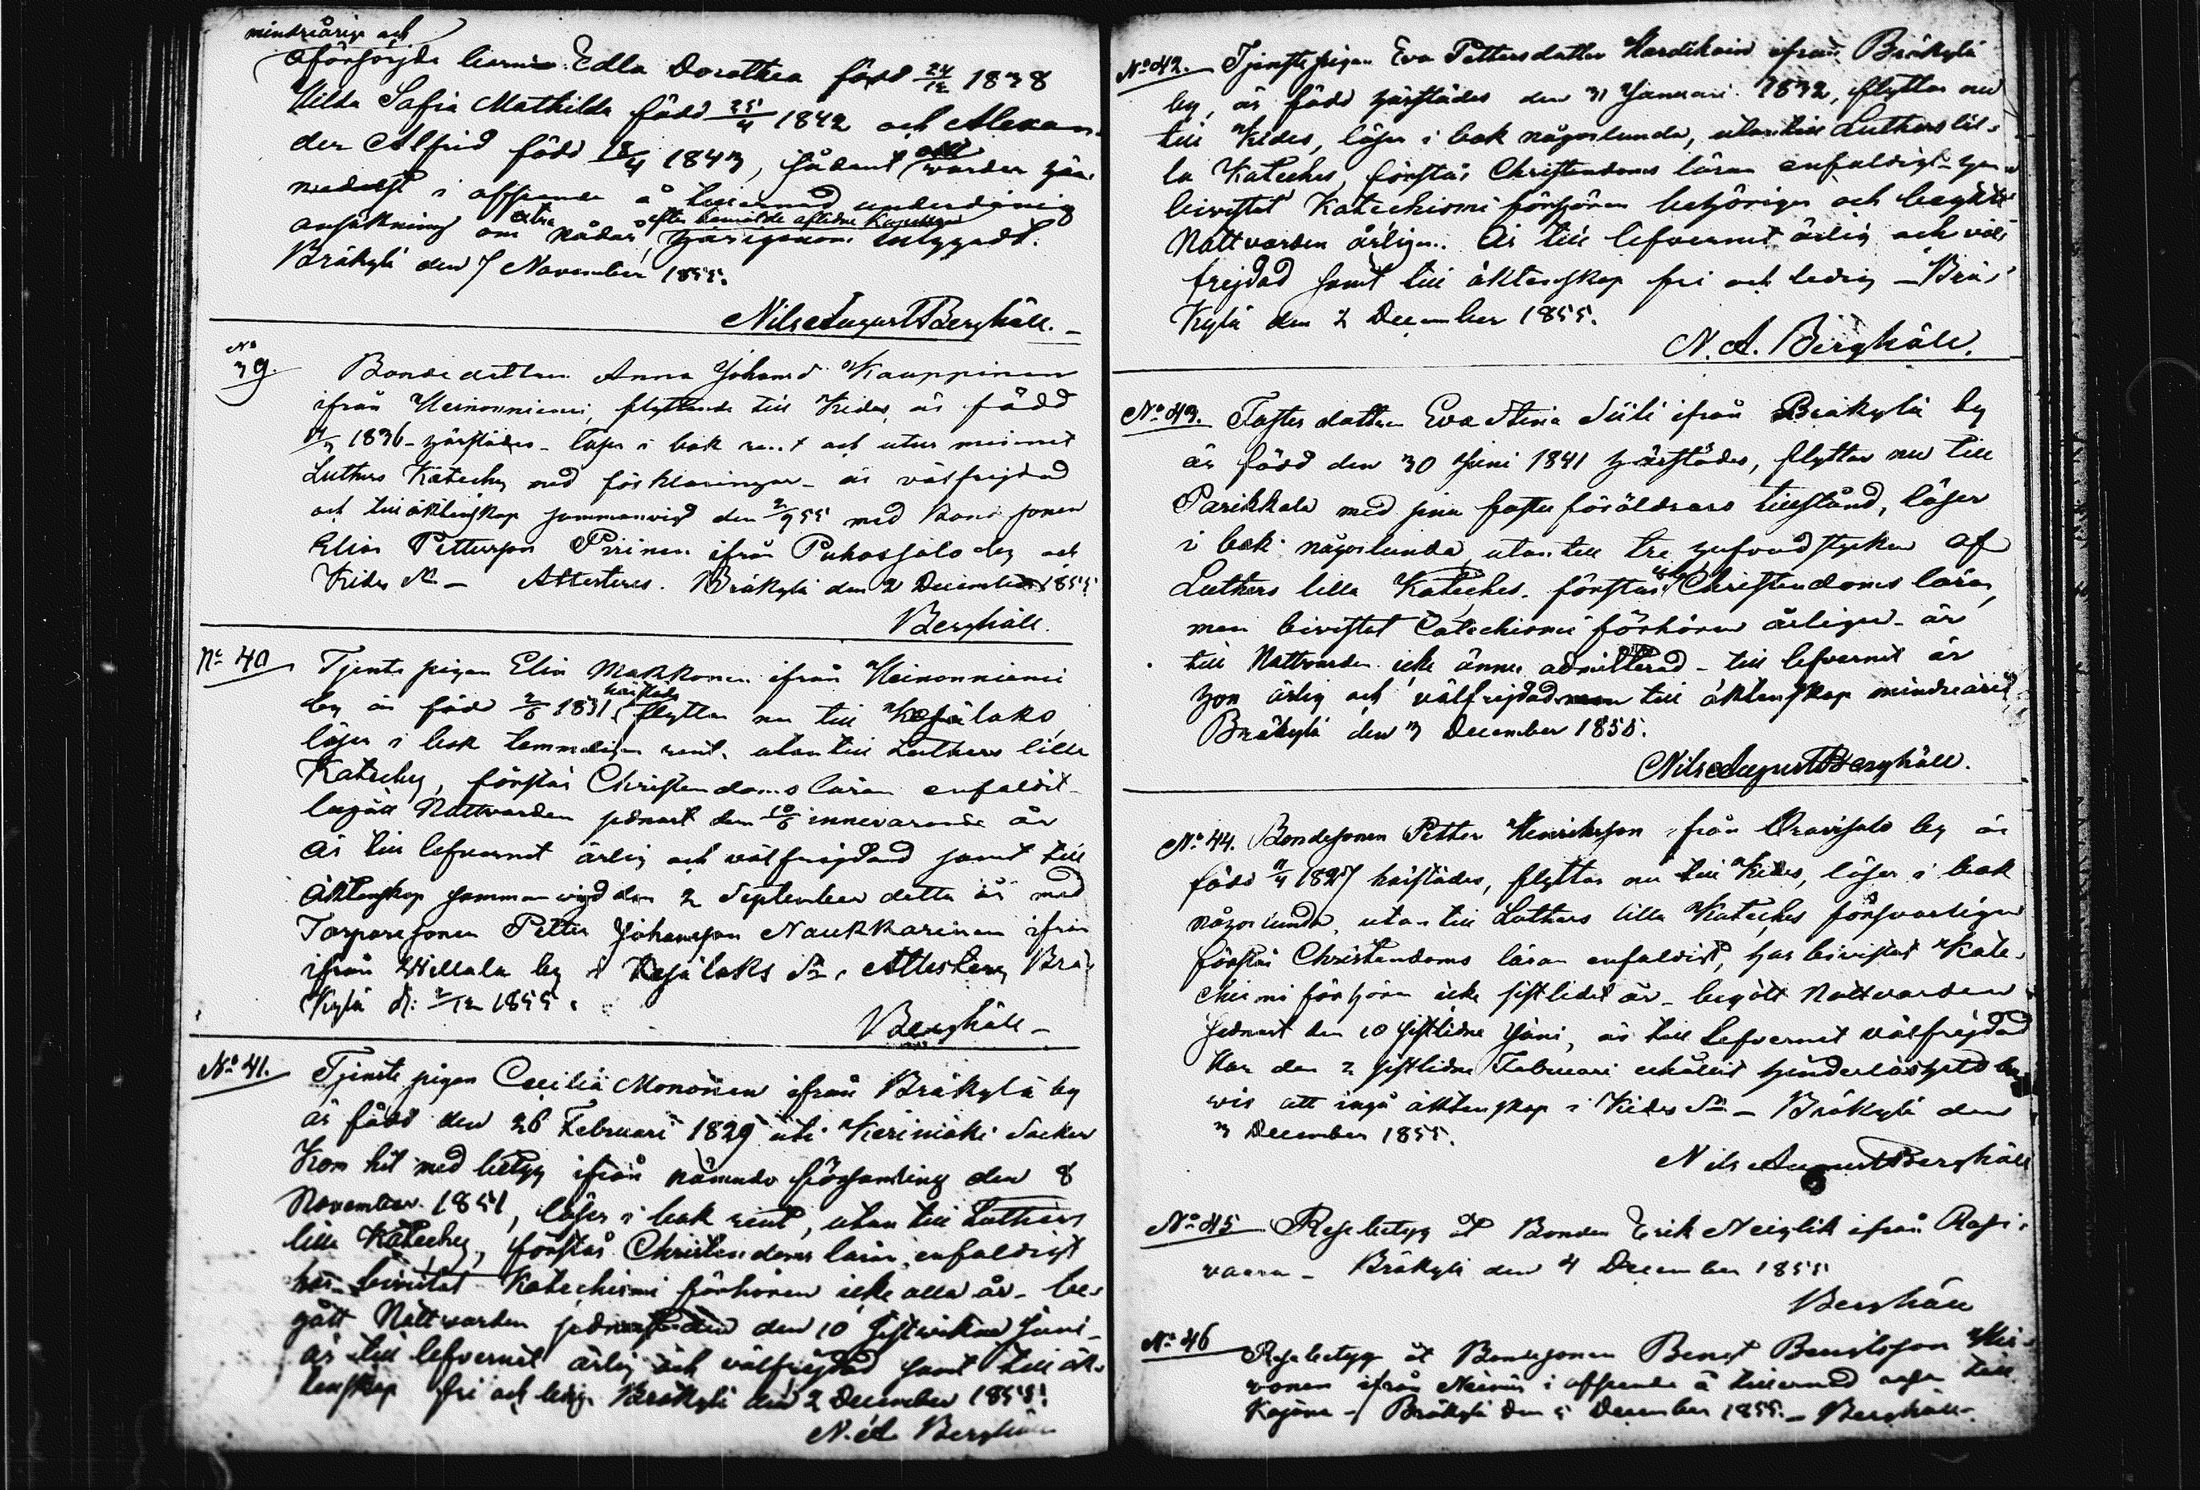 mindreårige och
oförsörjda barnen Edla Dorothea född 24/12 1838
Hilda Sofia Mathilda född 25/4 1842 och Alexan-
der Alfrid född 18/4 1843, sådant warder här-
medelst i afseende å tillernad underdånig
ansökning om extra nådår efter bemälde aflidne
Bräkylä den 7 November 1855.
Nils August Berghäll.
No 39.
Bondedottren Anna Johansd. Kauppinen
ifrån Heinonniemi, flyttande till Kides, är född
1836 härstädes - läser i bok rent och utur minnet
Luthers Kateches med förklaringar - är välfrejdad
och till äktenskap sammanvigd den 2/9 55 med Bondesonen
Elias Pettersson Pirinen ifrån Puhossalo by och
Kides Sn - Attesteres. Bräkylä den 2 December 1855.
Berghäll.
No 40
Tjenste pigan Elin Makkonen ifrån Heinonniemi
by är född 2/6 1831 härstädes flyttar nu till Kesälaks
läser i bok temmeligen rent, utantill Luthers lilla
Kateches, förstår Christendoms läran enfaldit
begått Nattvarden sednast den 10/6 innevarande år
Är till lefvernet ärlig och välfrejdad samt till
Äktenskap sammanvigd den 2 September detta år med
Torparesonen Petter Johansson Naukkarinen ifrån
ifrån Willala by i Kesälaks Sn, Attesteras Brä-
kylä d: 2/12 1855.
Berghäll -
No 41.
Tjenste pigan Cecilia Mononen ifrån Bräkylä by
är född den 26 Februari 1829 uti Kerimäki Socken
Kom hit med betyg ifrån nämnde församling den 8
November 1851, läser i bok rent, utan till Luthers
lilla Kateches, förstår Christendoms läran enfaldigt
har bivistat Katechismi förhören icke alla år - be-
gått Nattvarden sednast den 10 sistvikne Juni -
är till lefvernet ärlig och välfrejdad samt till äk-
tenskap fri och ledig. Bräkylä den 2 December 1855.
N. A. Berghäll
No 42. Tjenste pigan Eva Pettersdotter ifrån Bräkylä
by, är född härstädes den 31 Januari 1832, flyttar nu
till Kides, läser i bok någorlunda, utantill Luthers lil-
la Kateches, förstår Christendoms läran enfaldigt - har
bivistat Katechismi förhören behörigen och begått
Nattvarden årligen. Är till lefvernet ärlig och väl-
frejdad samt till äktenskap fri och ledig - Brä-
kylä den 2 December 1855.
N. A. Berghäll.
No 43. Foster dottren Eva Stina Siili ifrån Bräkylä by
är född den 30 Juni 1841 härstädes, flyttar nu till
Parikkala med sina foster föräldrars tillstånd, läser
i bok någorlunda, utantill tre hufvudstycken af
Luthers lilla Kateches. förstår Christendoms läran,
men bivistat Catechismi förhören årligen - är
till Nattvarden icke ännu admitterad - till lefvernet är
hon ärlig och välfrejdad till äktenskap minderårig
Bräkylä den 3 December 1855.
Nils August Berghäll.
No 44. Bondesonen Petter Henriksson ifrån Oravisalo by är
född 1827 härstädes, flyttar nu till Kides, läser i bok
någorlunda, utan till Luthers lilla Kateches försvarligen
förstår Christendoms läran enfaldigt, har bivistat Kate-
chismi förhören icke sistlidet år - begått Nattvarden
sednast den 10 sistlidne Juni, är till Lefvernet välfrejdad
Har den 2 sistlidne Februari erhållit hinderlöshets be-
vis att ingå äktenskap i Kides Sn - Bräkylä den
3 December 1855.
Nils August Berghäll
No 45 Resebetyg åt Bonden Erik Neiglik ifrån Rasi-
vaara - Bräkylä den 4 December 1855
Berghäll
No 46
Resebetyg åt Bondesonen Bengt Bengtsson
vonen ifrån Niiniis i afseende å tillernad resa till
Kajana - Bräkylä den 5 December 1855 - Berghäll -